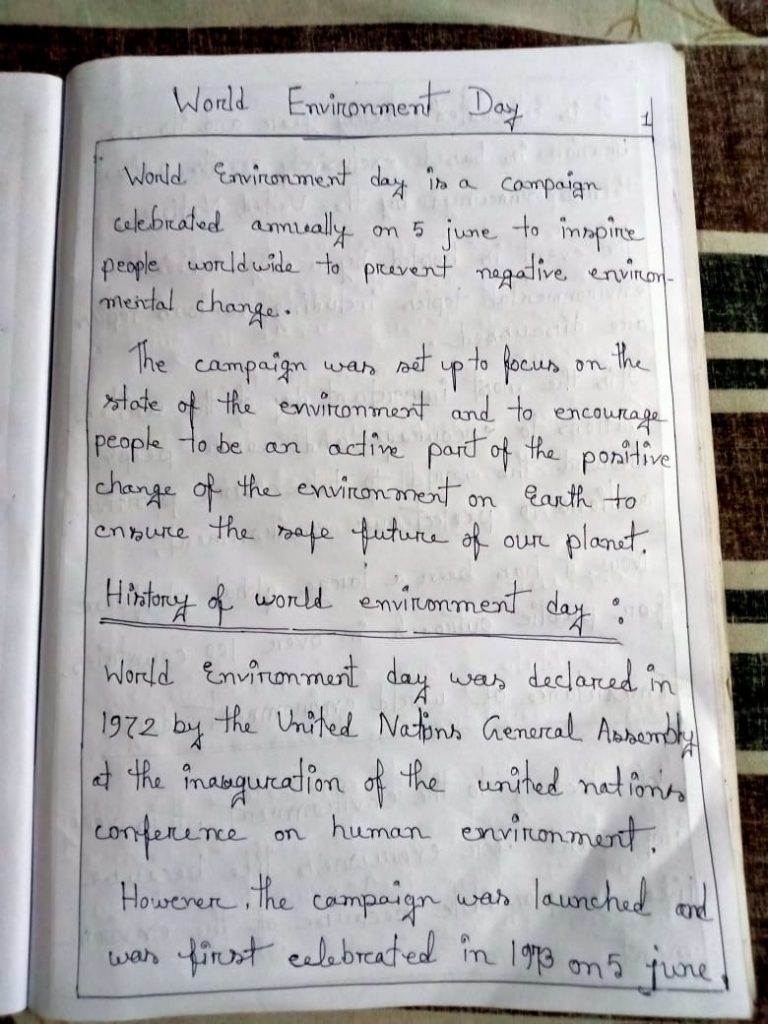 World Environment Day
1
World Environment day is a campaign
celebrated annually on 5 june to inspire
people worldwide to prevent negative environ-
mental change.
The campaign was set up to focus on the
state of the environment and to encourage
people to be an active part of the positive
change of the environment on Earth to
ensure the safe future of our planet.
History of world environment day :
World Environment day was declared in
1972 by the United Nations General Assembly
at the inauguration of the united nation's
conference on human environment.
However, the campaign was launched and
was first celebrated in 1973 on 5 june.